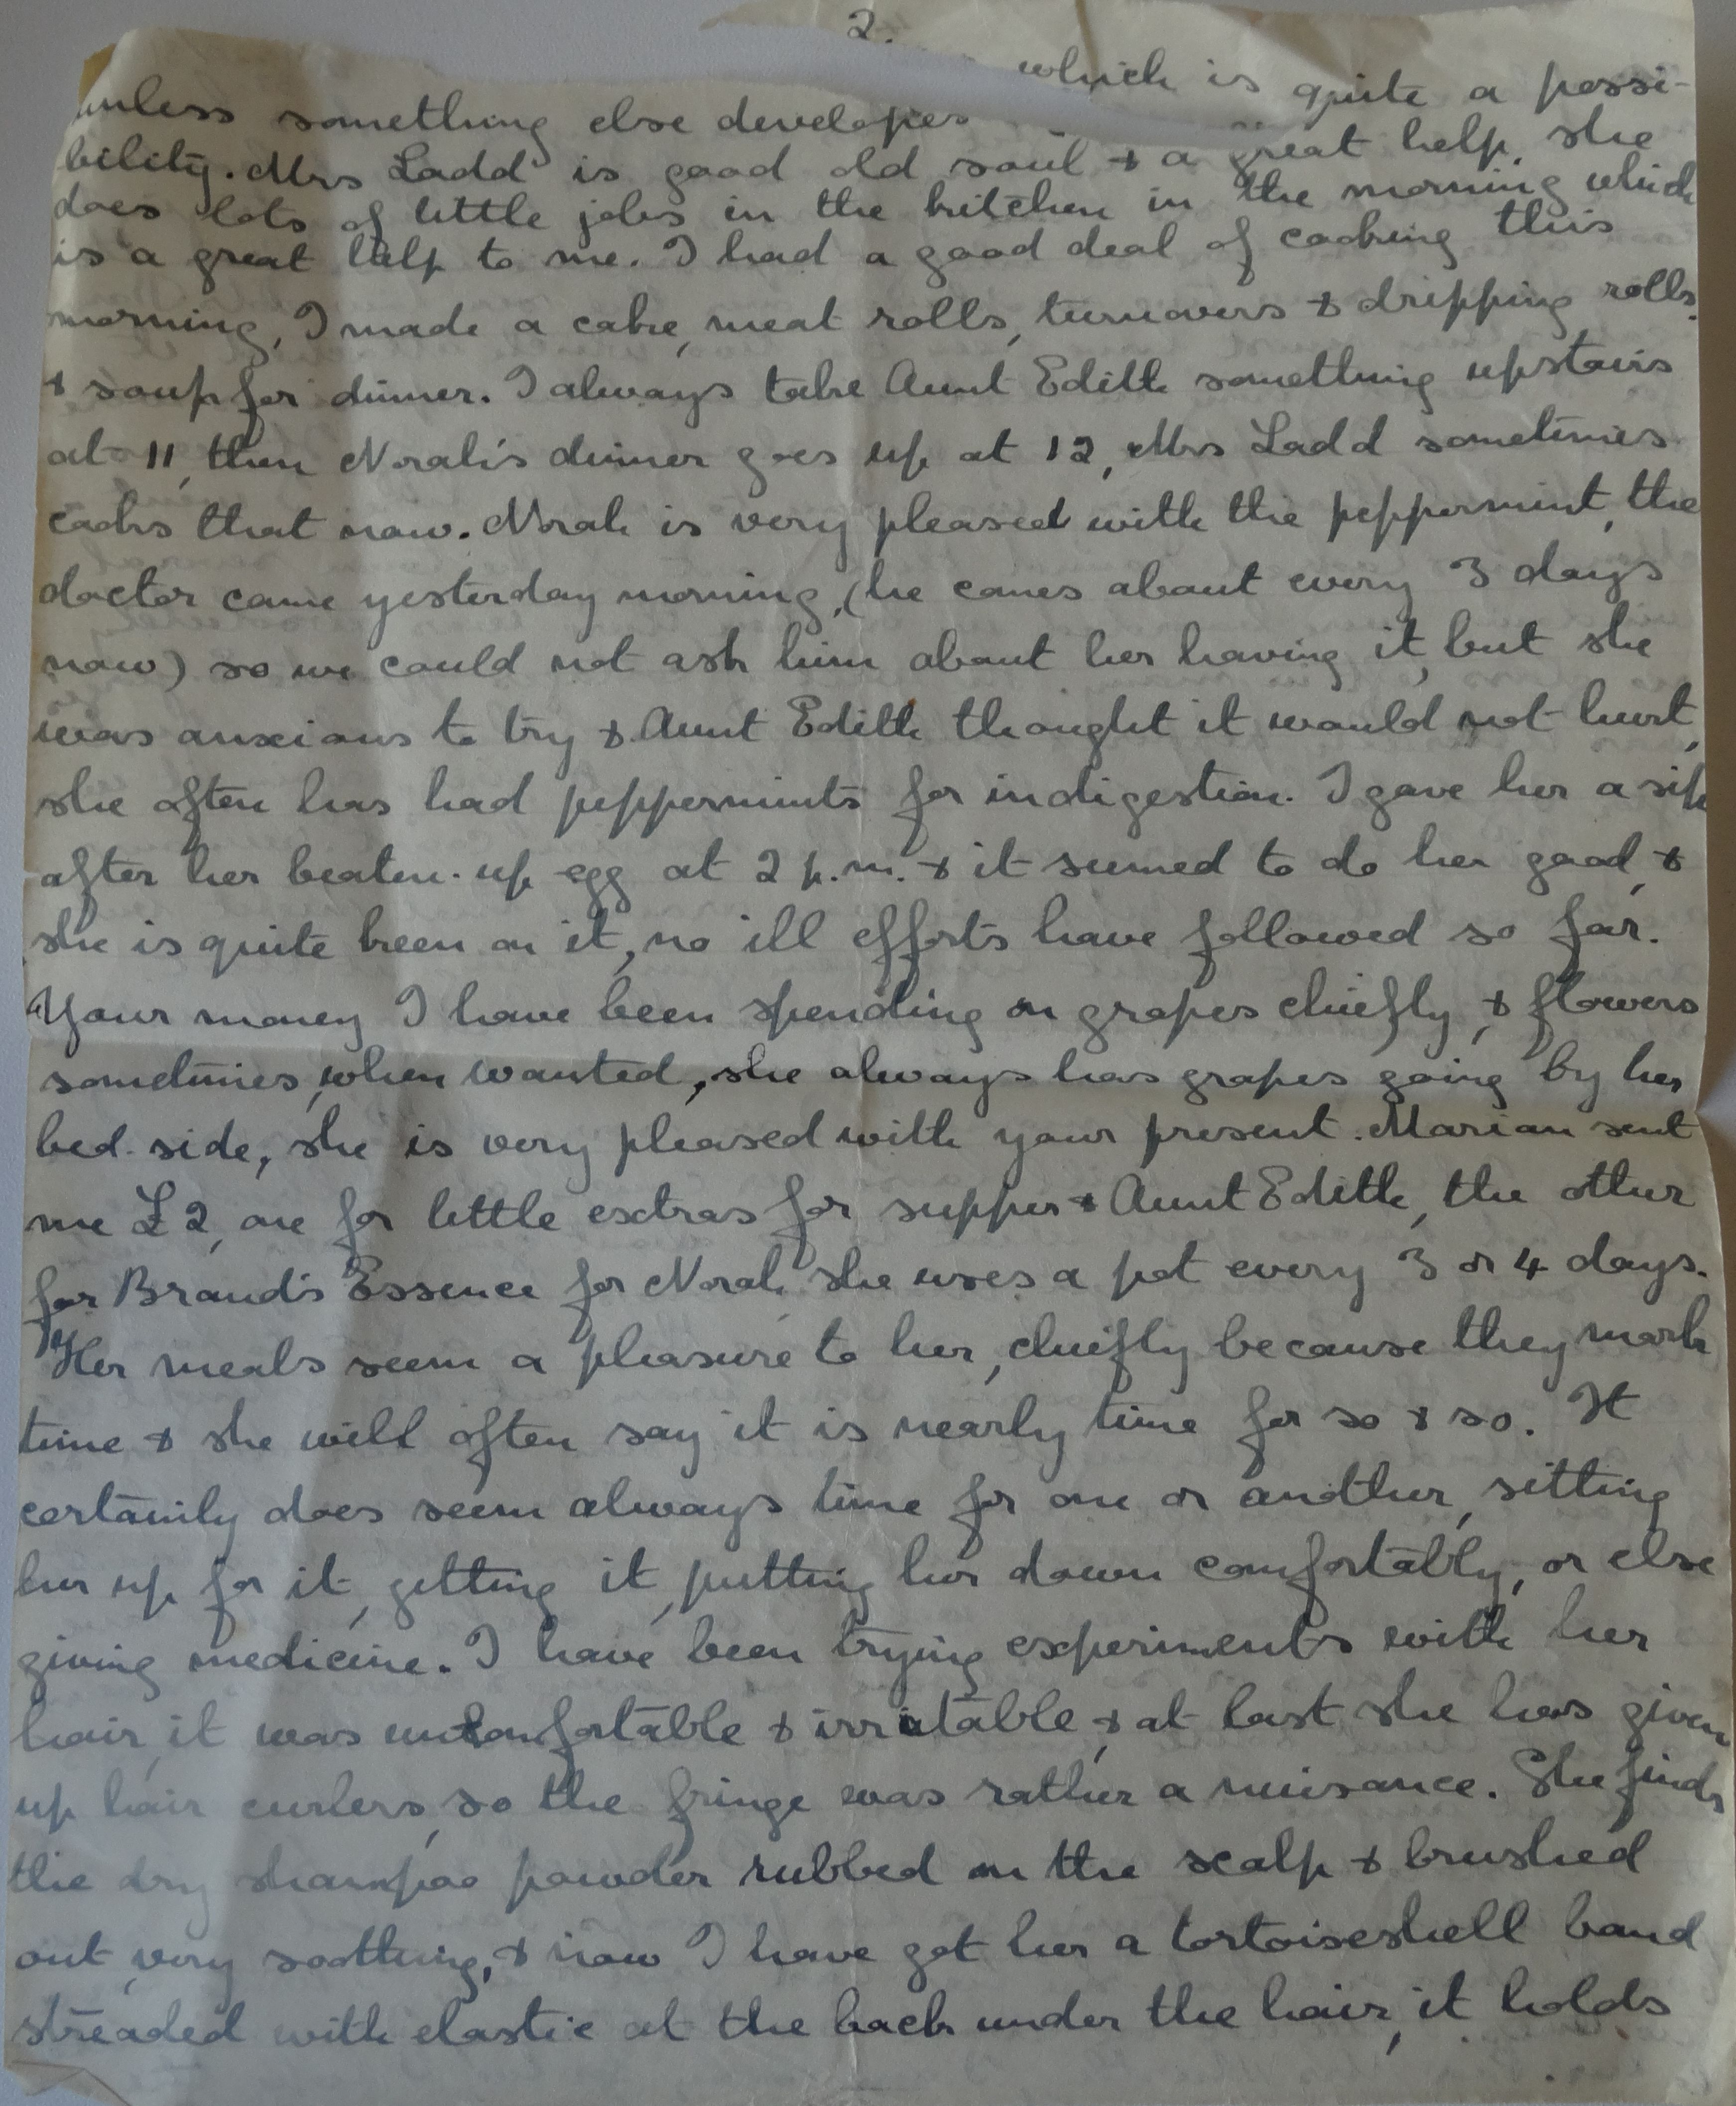 2.
unless something else developes which is quite a possi-
bility. Mrs Ladd is good old soul & a great help, she
does lots of little jobs in the kitchen in the morning which
is a great help to me. I had a good deal of cooking this
morning, I made a cake, meat rolls, turnovers & dripping rolls,
& soup for dinner. I always take Aunt Edith something upstairs
at 11, then Norah's dinner goes up at 12, Mrs Ladd sometimes
cooks that now. Norah is very pleased with the peppermint, the
doctor came yesterday morning, (he comes about every 3 days
now) so we could not ask him about her having it, but she
was anxious to try & Aunt Edith thought it would not hurt,
she often has had peppermints for indigestion. I gave her a sip
after her beaten-up egg at 2 p.m. & it seemed to do her good, &
she is quite keen on it, no ill efforts have followed so far.
Your money I have been spending on grapes chiefly, & flowers
sometimes, when wanted, she always has grapes going by her
bed-side, she is very pleased with your present. Marian sent
me £2, one for little extras for supper & Aunt Edith, the other
for Brand's Essence for Norah, she uses a pot every 3 or 4 days.
Her meals seem a pleasure to her, chiefly because they mark
time & she will often say it is nearly time for so & so. It
certainly does seem always time for one or another, sitting
her up for it, getting it, putting her down comfortably, or else
giving medicine. I have been trying experiments with her
hair, it was uncomfortable & irritable, & at last she has given
up hair curlers, so the fringe was rather a nuisance. She finds
the dry shampoo powder rubbed on the scalp & brushed
out very soothing, & now I have got her a tortoiseshell band
streaded with elastic at the back under the hair, it holds